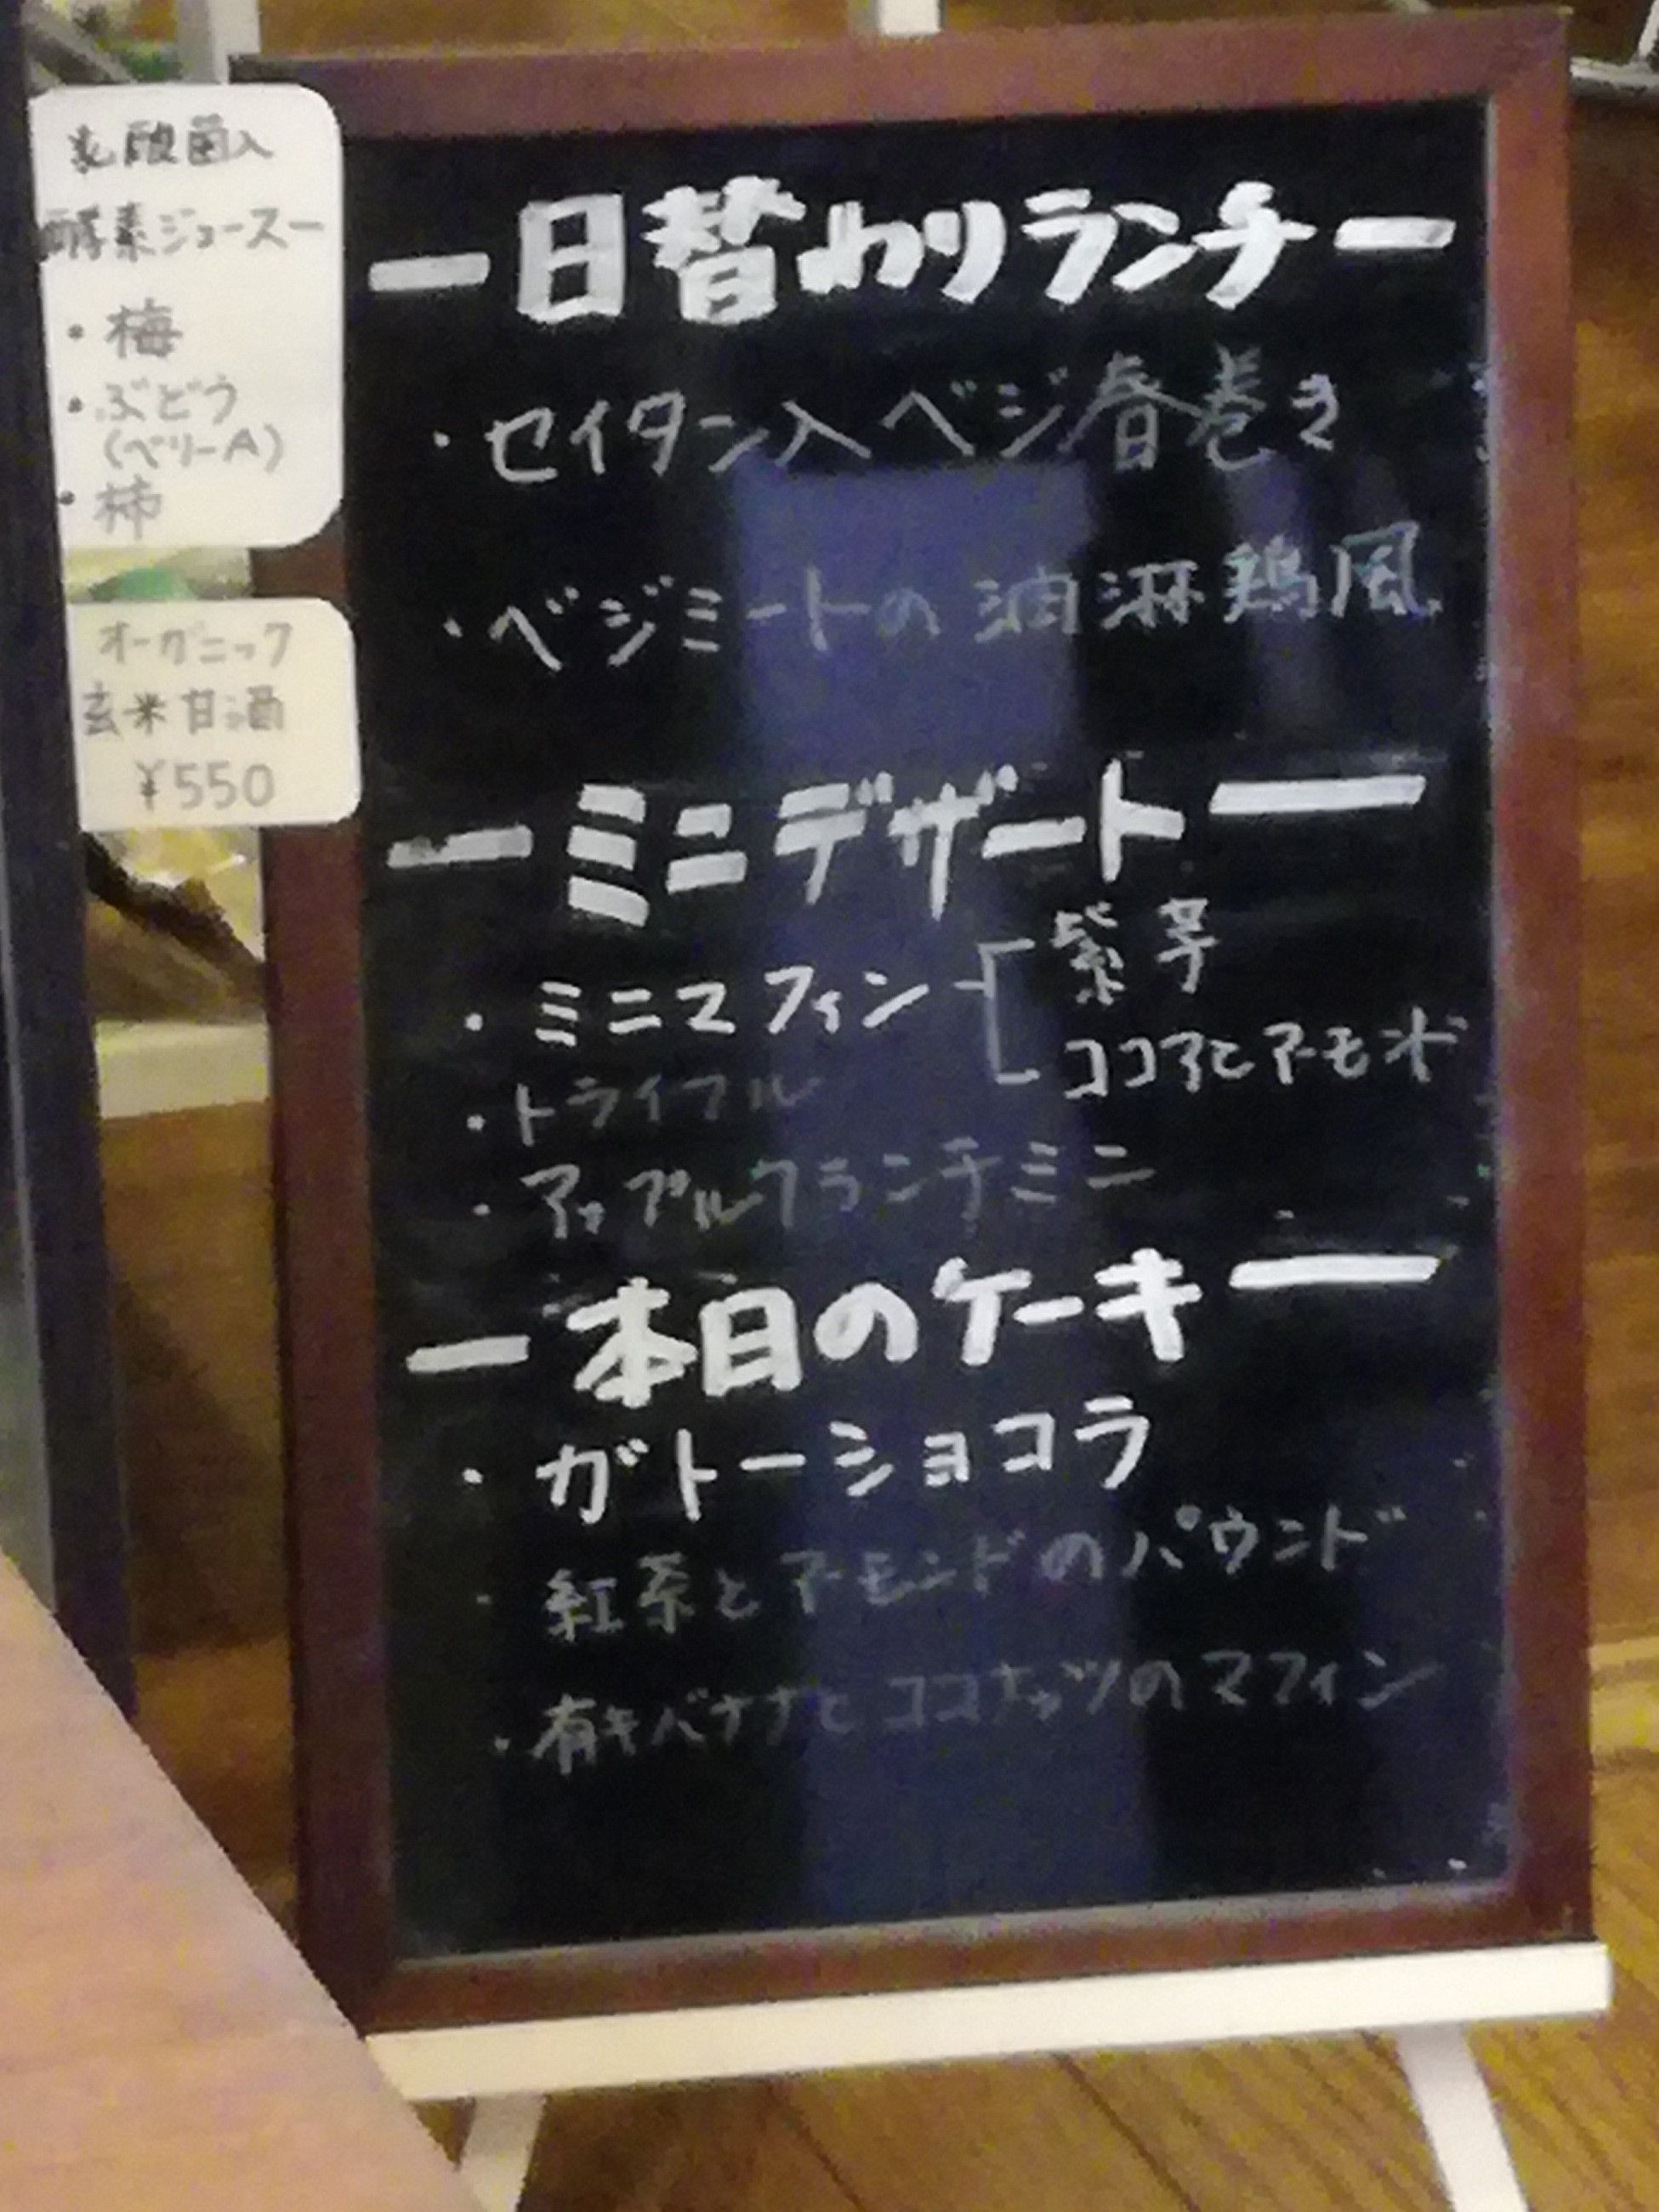 乳酸菌入
酵素ジュース
・梅
・ぶどう
(ベリーA)
・柿
オーガニック
玄米甘酒
¥550
ー日替わりランチー
・セイタン入ベジ春巻き
・ベジミートの油淋鶏風
ーミニデザートー
・ミニマフィン 紫芋
ココアとアーモンド
・トライフル
・アップルクランチミニ
ー本日のケーキー
・ガトーショコラ
・紅茶とアーモンドのパウンド
・有キバナナとココナッツのマフィン